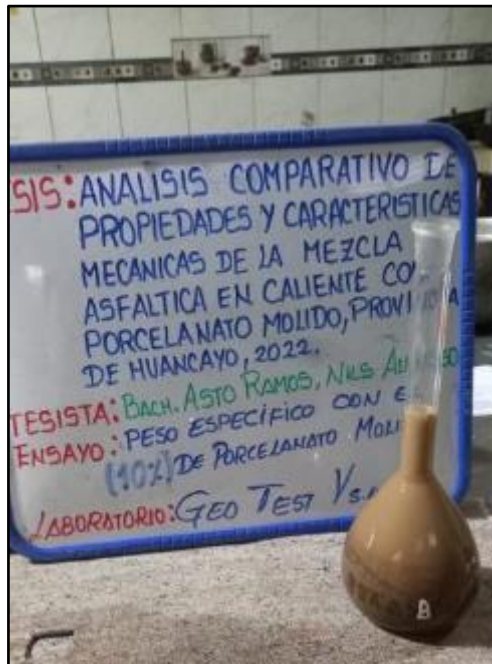 SIS: ANALISIS COMPARATIVO DE
PROPIEDADES Y CARACTERISTICAS
MECANICAS DE LA MEZCLA
ASFALTICA EN CALIENTE
PORCELANATO MOLIDO,
DE HUANCAYO, 2022.
TESISTA: BACH. ASTO RAMOS, NILS
ENSAYO: PESO ESPECÍFICO CON
(10%) DE PORCELANATO
LABORATORIO: GEO TEST V